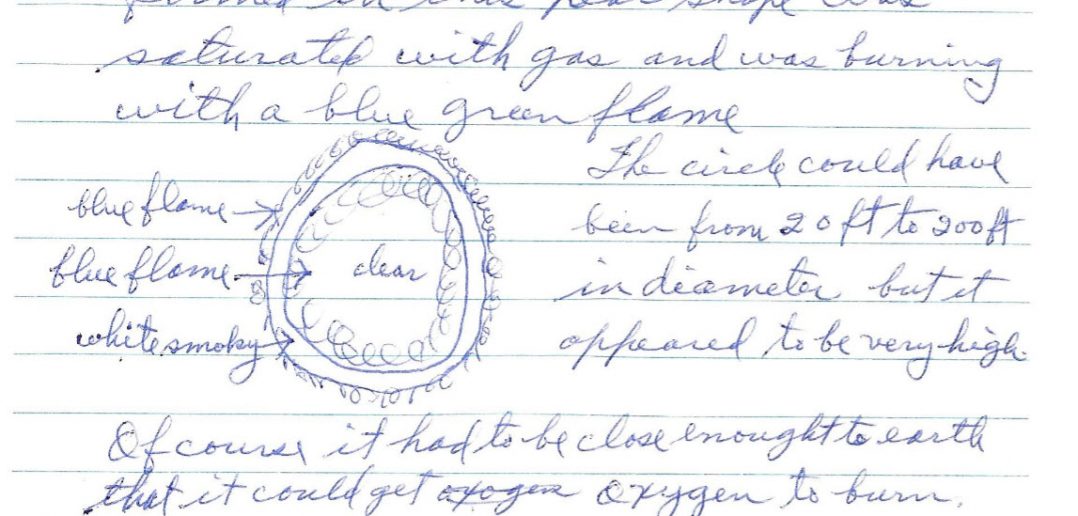 formed in this pear shape was
saturated with gas and was burning
with a blue green flame
The circle could have
been from 20 ft to 200 ft
in diameter but it
appeared to be very high.
blue flame
blue flame
clear
white smoky
Of course it had to be close enought to earth
that it could get oxogen oxygen to burn.